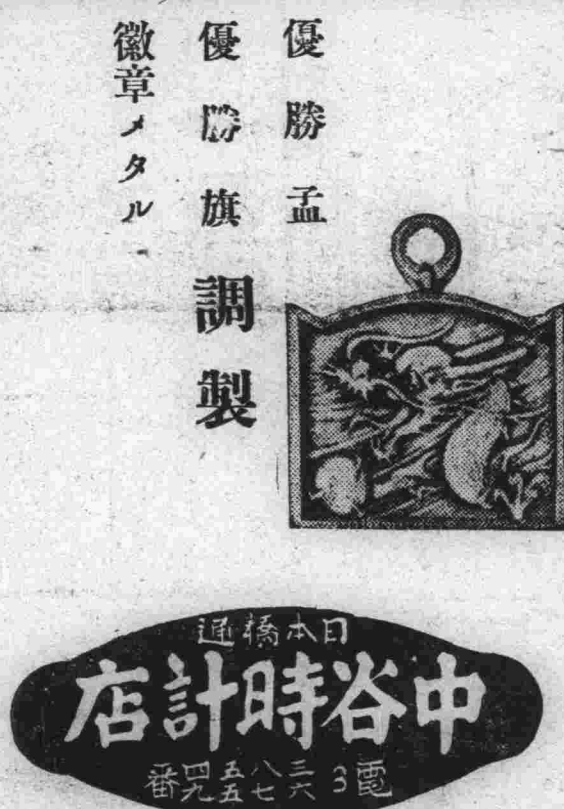 優勝孟
優勝旗調製
徽章メタル
日本橋通
中谷時計店
電3三八五四
六七五九番